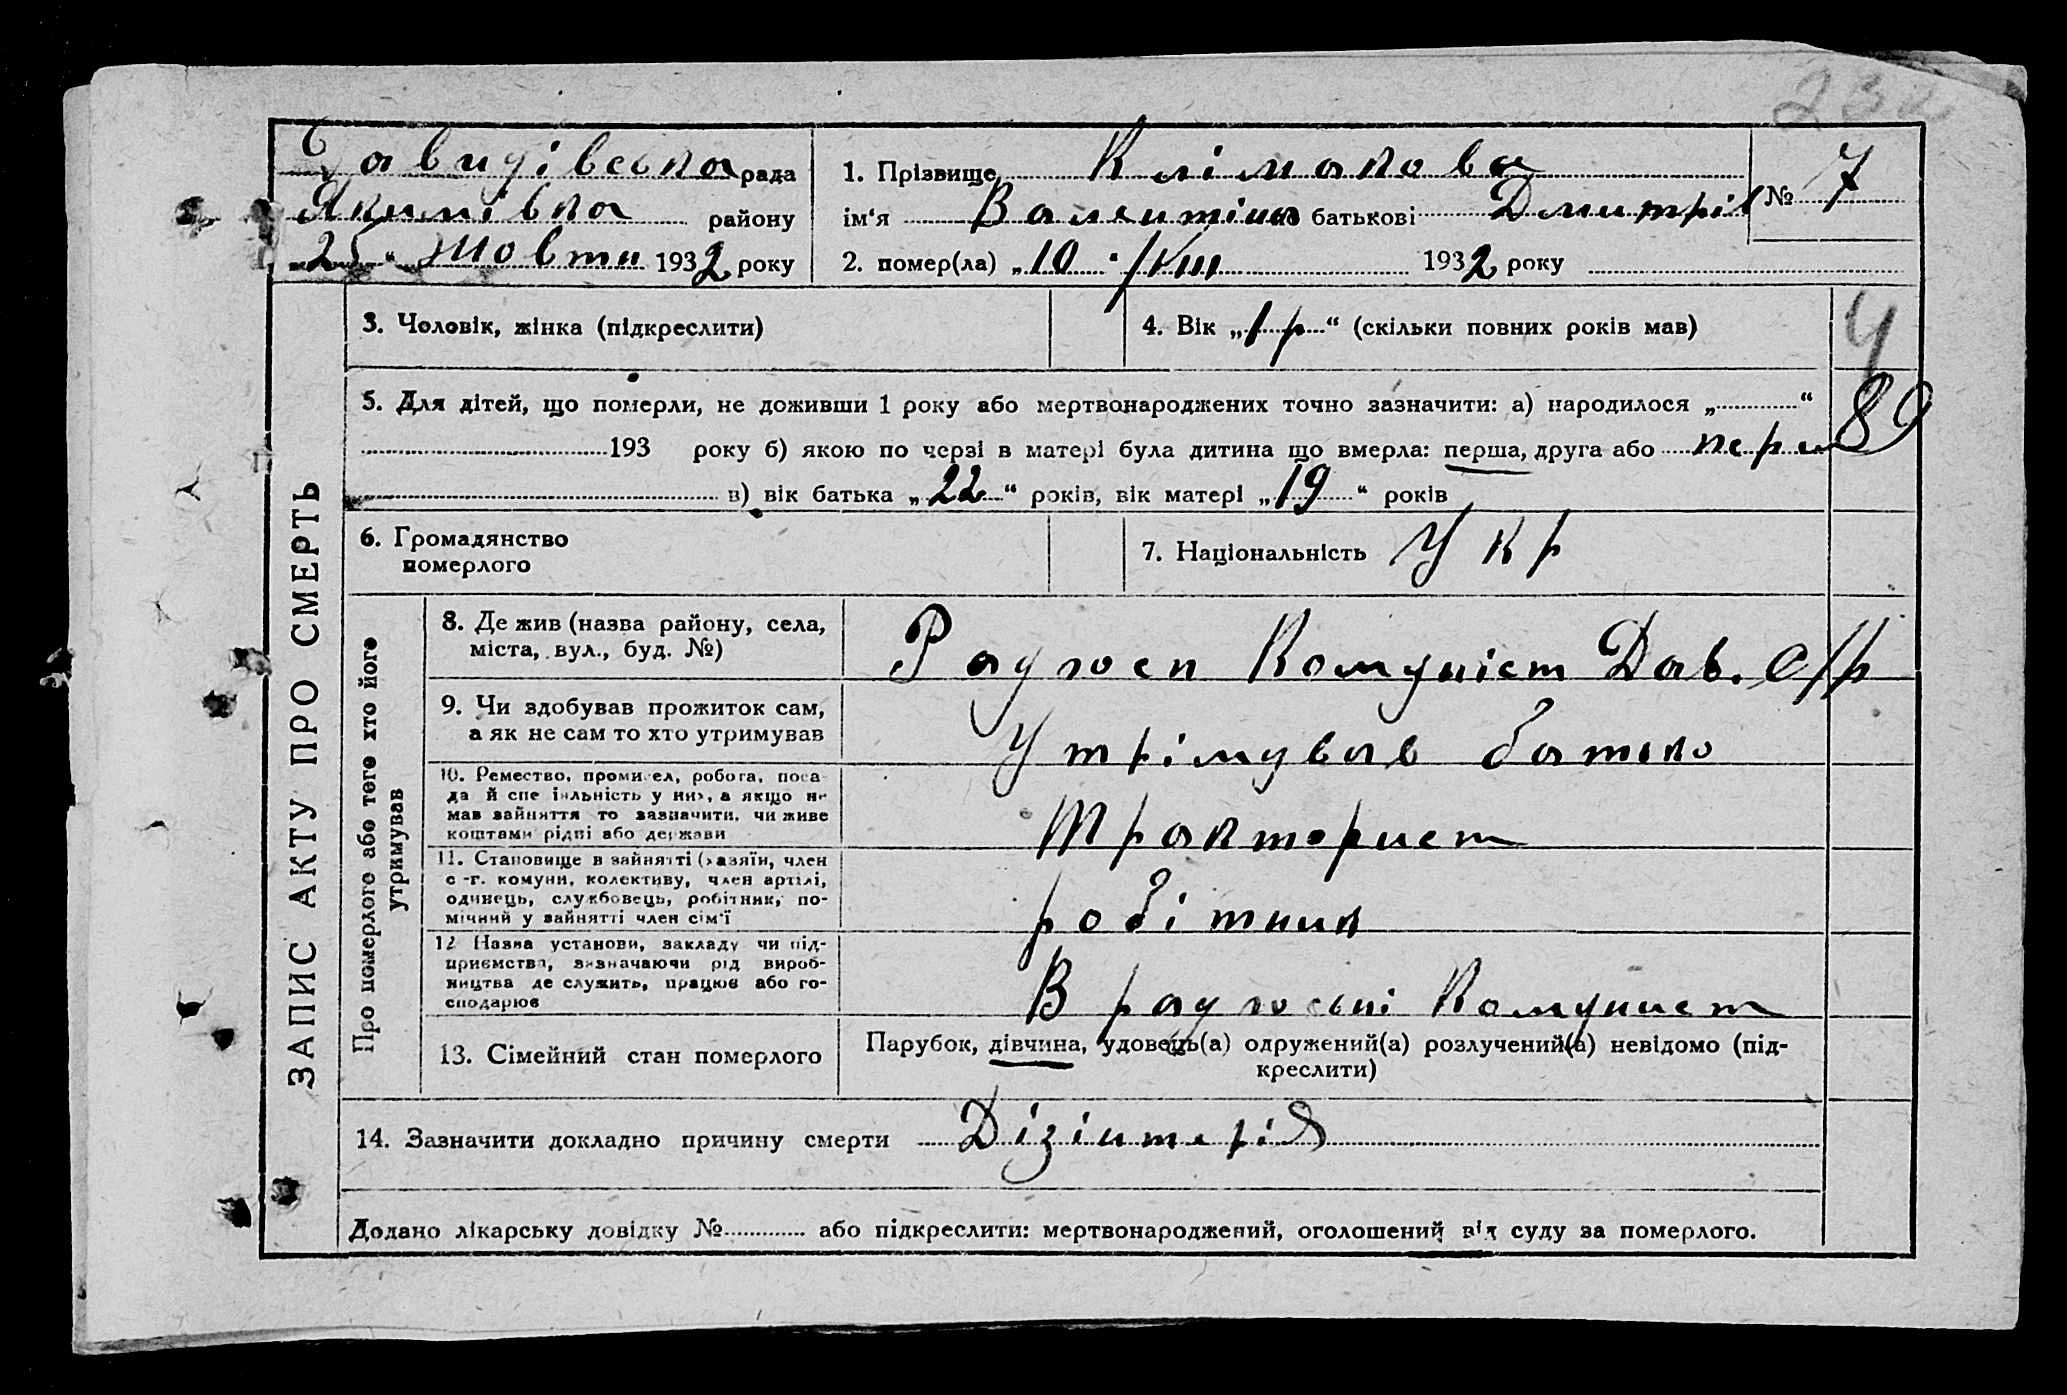 232
Давидівська рада
Якимівка району
25 “ Жовтн 1932 року
1. Прізвище Клімакова
ім‘я Валентіна батькові Дмитрів
№ 7
2. помер(ла) „10 “ /VIII 1932 року
ЗАПИС АКТУ ПРО СМЕРТЬ
3. Чоловік, жінка (підкреслити)
4. Вік „1 р“ (скільки повних років мав)
4
5. Для дітей, що померли, не доживши 1 року або мертвонароджених точно зазначити: а) народилося „ “
193 року б) якою по черзі в матері була дитина що вмерла: перша, друга або перш
89
в) вік батька „22“ років, вік матері „19“ років
6. Громадянство
померлого
7. Національність Укр
Про померлого або того хто його
утримував
8. Де жив (назва району, села,
міста, вул., буд. №)
Радгосп Комуніст Дав. с/р
9. Чи здобував прожиток сам,
а як не сам то хто утримував
Утрімував батько
10. Ремество, промисел, робота, поса-
да й спеціяльність у них, а якщо не
мав зайняття то зазначити, чи живе
коштами рідні або держави
Тракторист
11. Становище в зайнятті (хазяїн, член
с.-г. комуни, колективу, член артілі,
одинець, службовець, робітник, по-
мічний у зайнятті член сім'ї
робітник
12 Назва установи, закладу чи під-
приємства, визначаючи рід вироб-
ництва де служить, працює або го-
сподарює
В радгоспі Комунист
13. Сімейний стан померлого
Парубок, дівчина, удовець(а) одружений(а) розлучений(а) невідомо (під-
креслити)
14. Зазначити докладно причину смерти Дізінтерія
Додано лікарську довідку № або підкреслити: мертвонароджений, оголошений від суду за померлого.